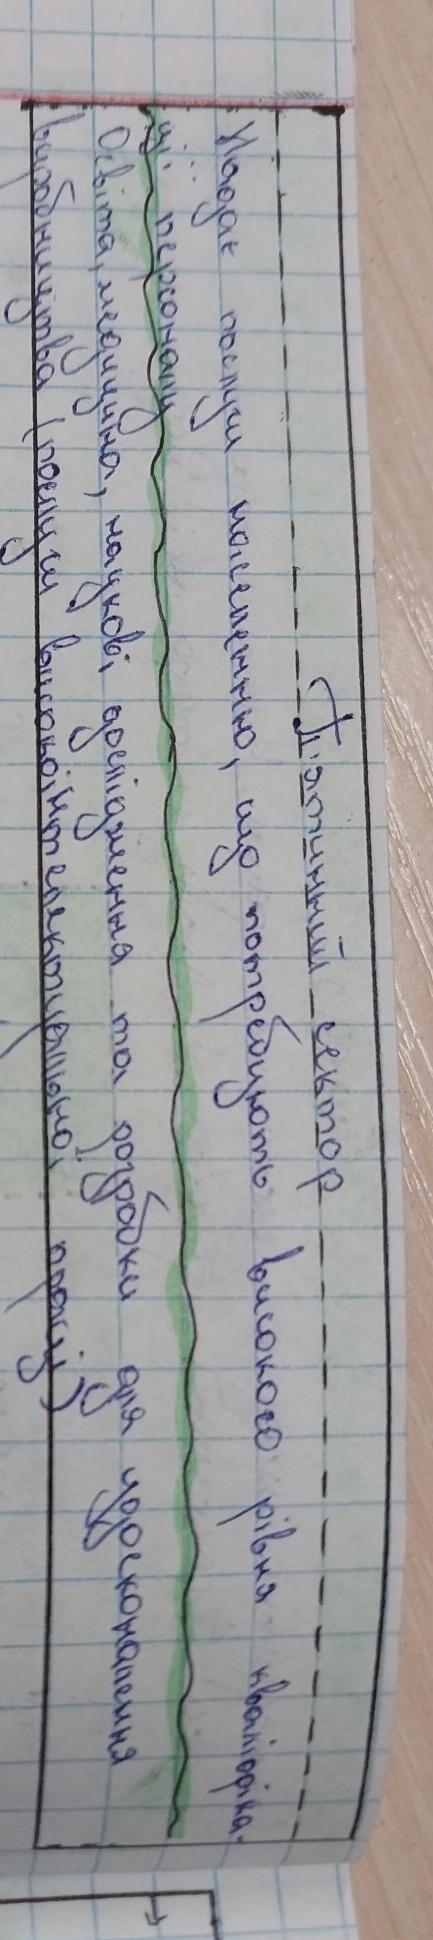 П'ятинний сектор
Надає послуги населенню, що потребують високого рівня кваліфіка-
ції персоналу
Освіта, медицина, наукові дослідження та розробки для удосконалення
виробництва (послуги високоінтелектуальної праці)